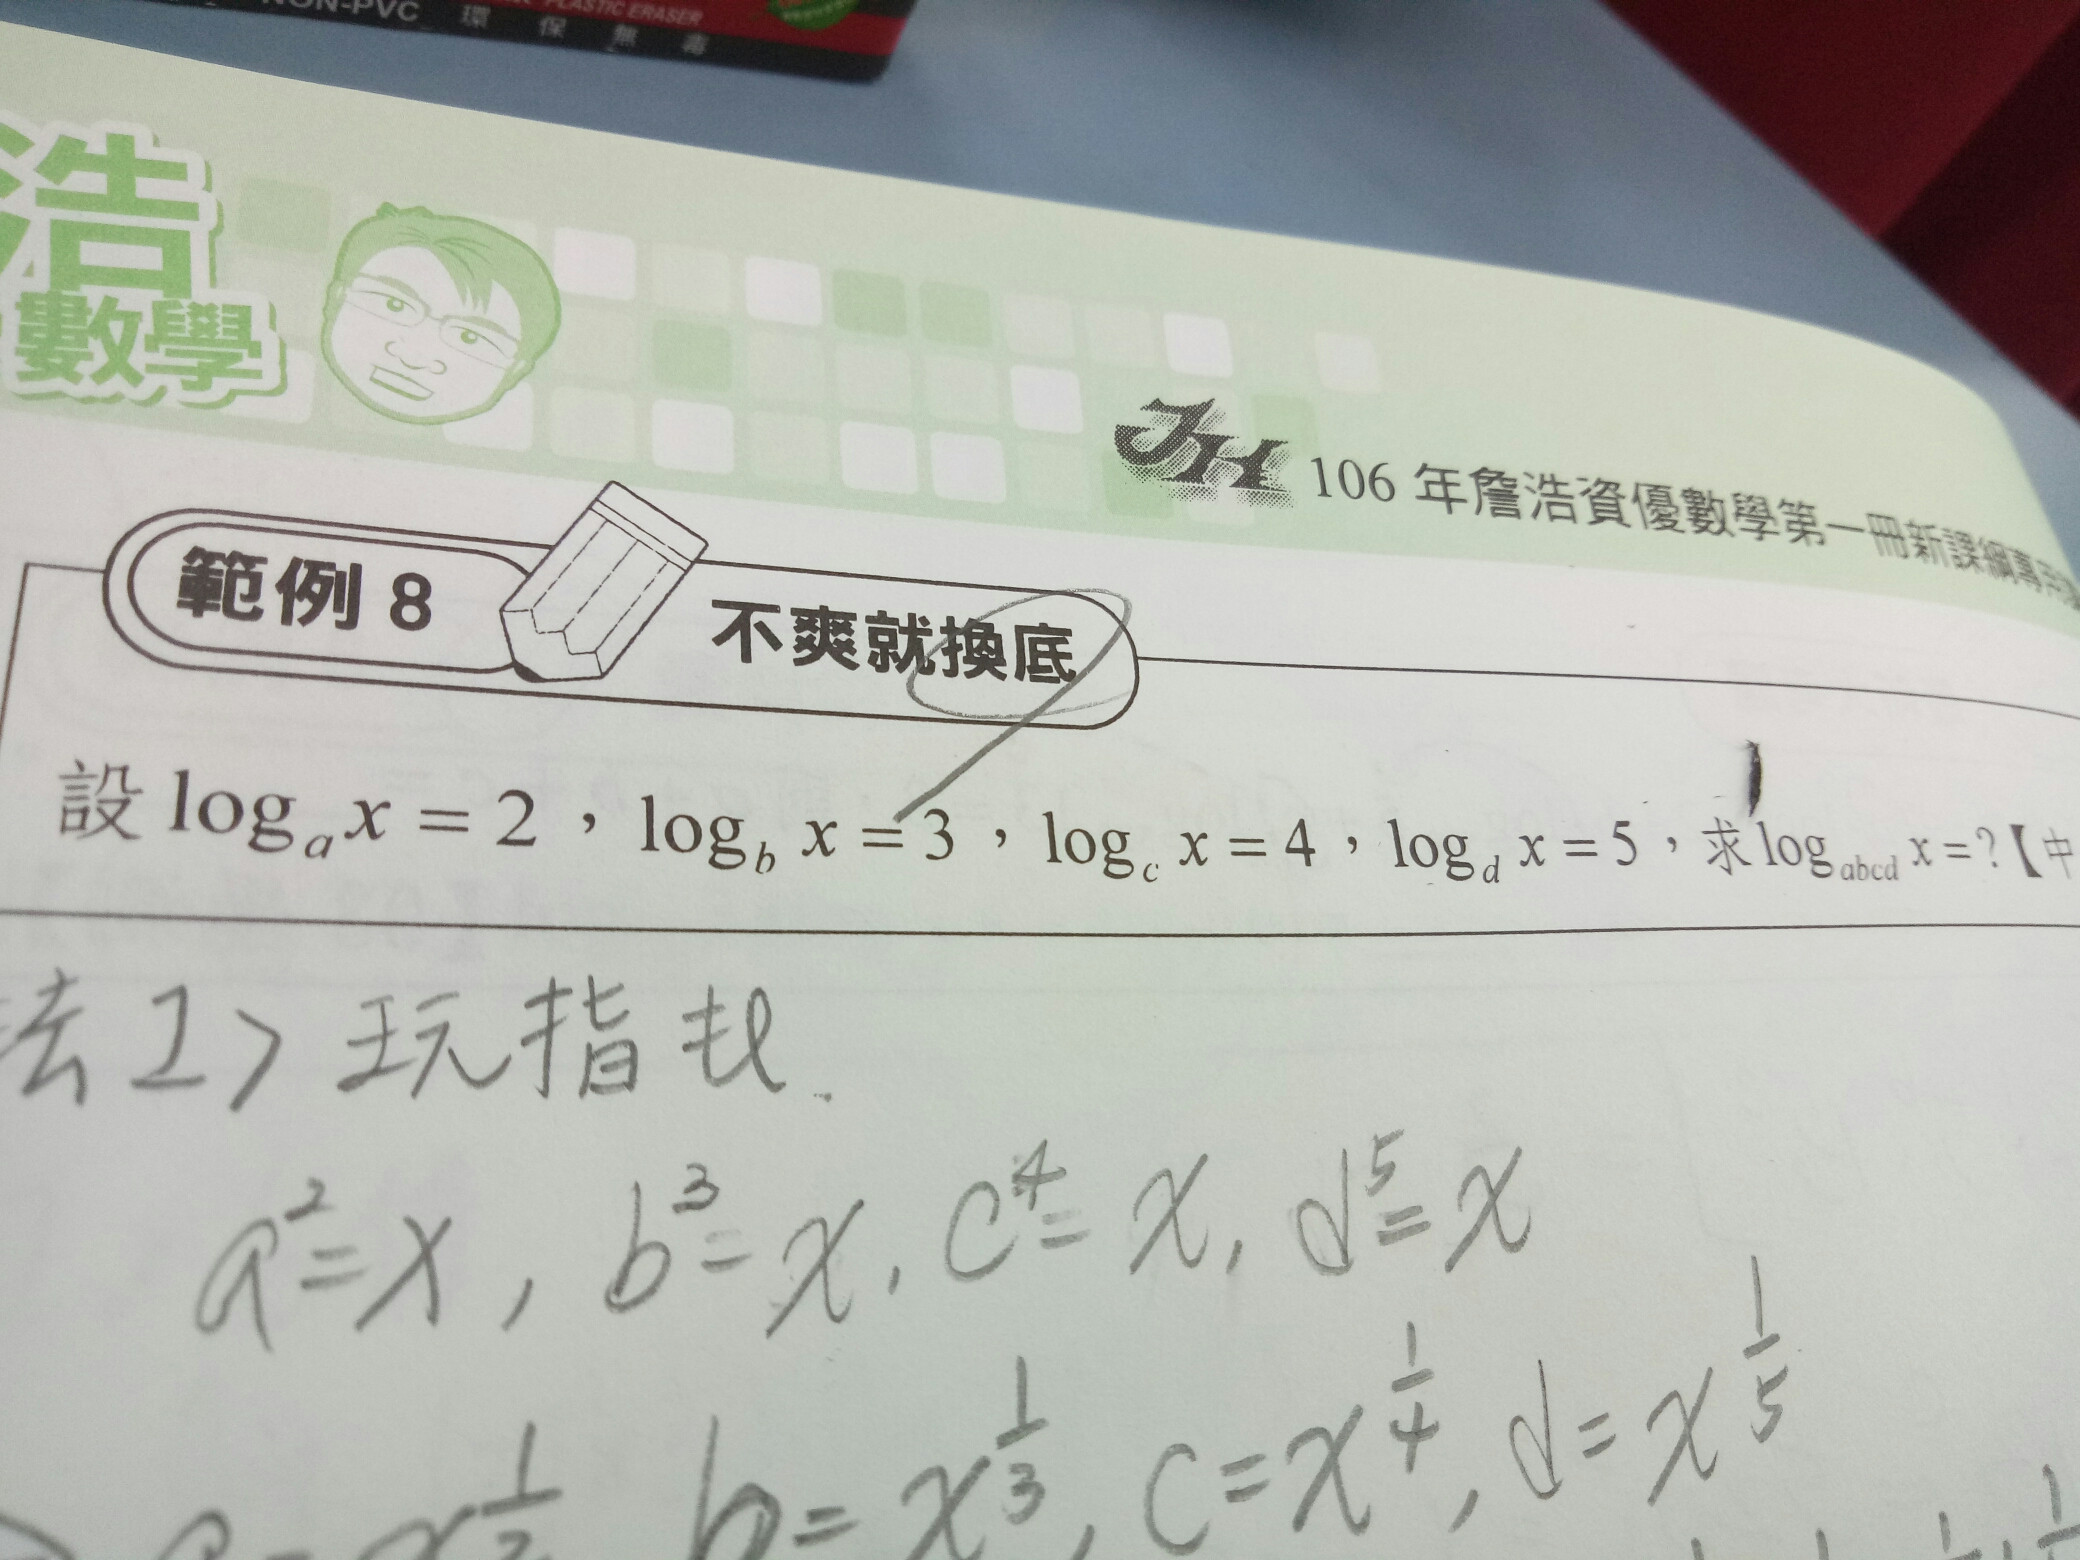 NON-PVC PLASTIC ERASER
環保無毒
浩
數學
JH 106 年詹浩資優數學第一冊新課綱專用
範例 8 不爽就換底
設 logₐ x = 2，log_b x = 3，log_c x = 4，log_d x = 5，求 log_abcd x = ?【中
法1> 玩指
a² = x, b³ = x, c⁴ = x, d⁵ = x
b = x^(1/3), c = x^(1/4), d = x^(1/5)